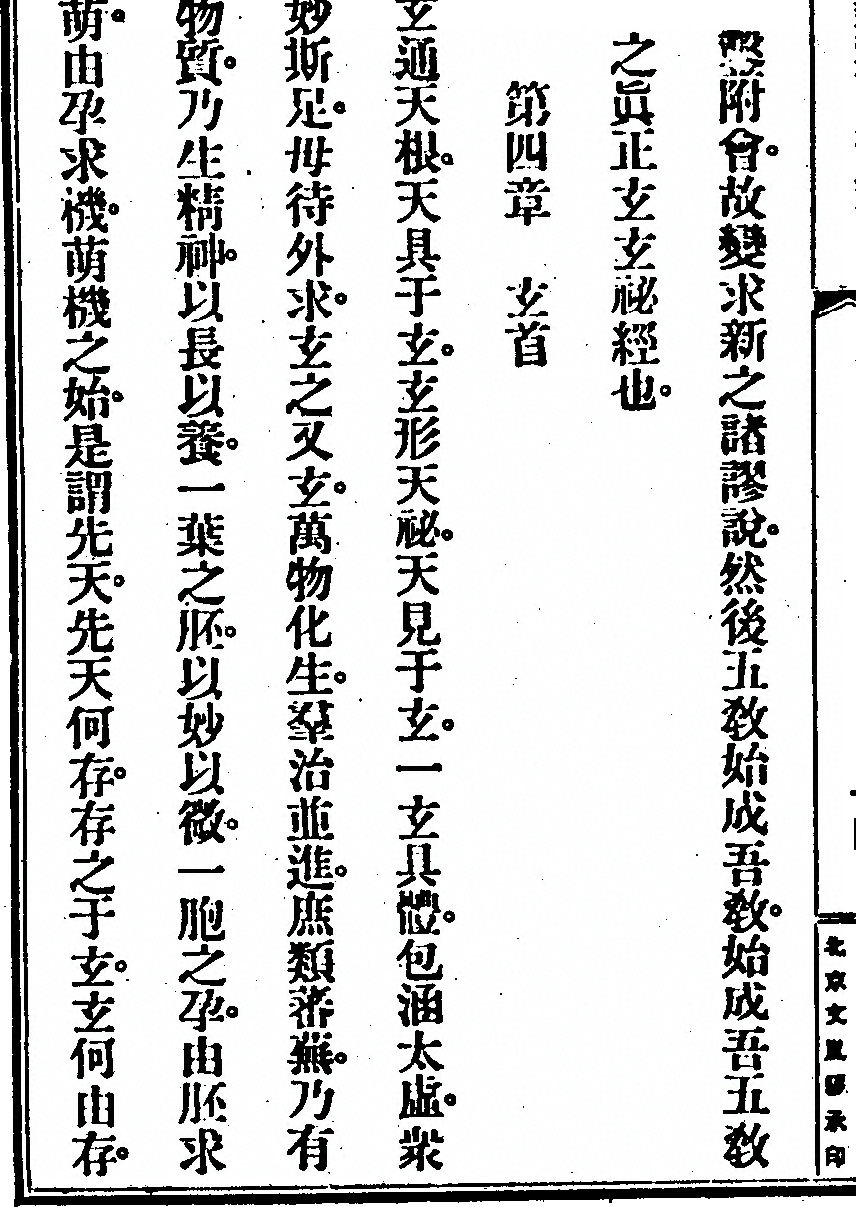 附會。故變求新之諸謬說。然後五教始成吾教。始成吾五教
之眞正玄玄祕經也。
第四章　玄首
玄通天根。天具于玄。玄形天祕。天見于玄。一玄具體。包涵太虛。衆
妙斯足。毋待外求。玄之又玄。萬物化生。羣治並進。庶類蕃蕪。乃有
物質。乃生精神。以長以養。一葉之胚。以妙以微。一胞之孕。由胚求
萌。由孕求機。萌機之始。是謂先天。先天何存。存之于玄。玄何由存。
北京文嵐簃承印